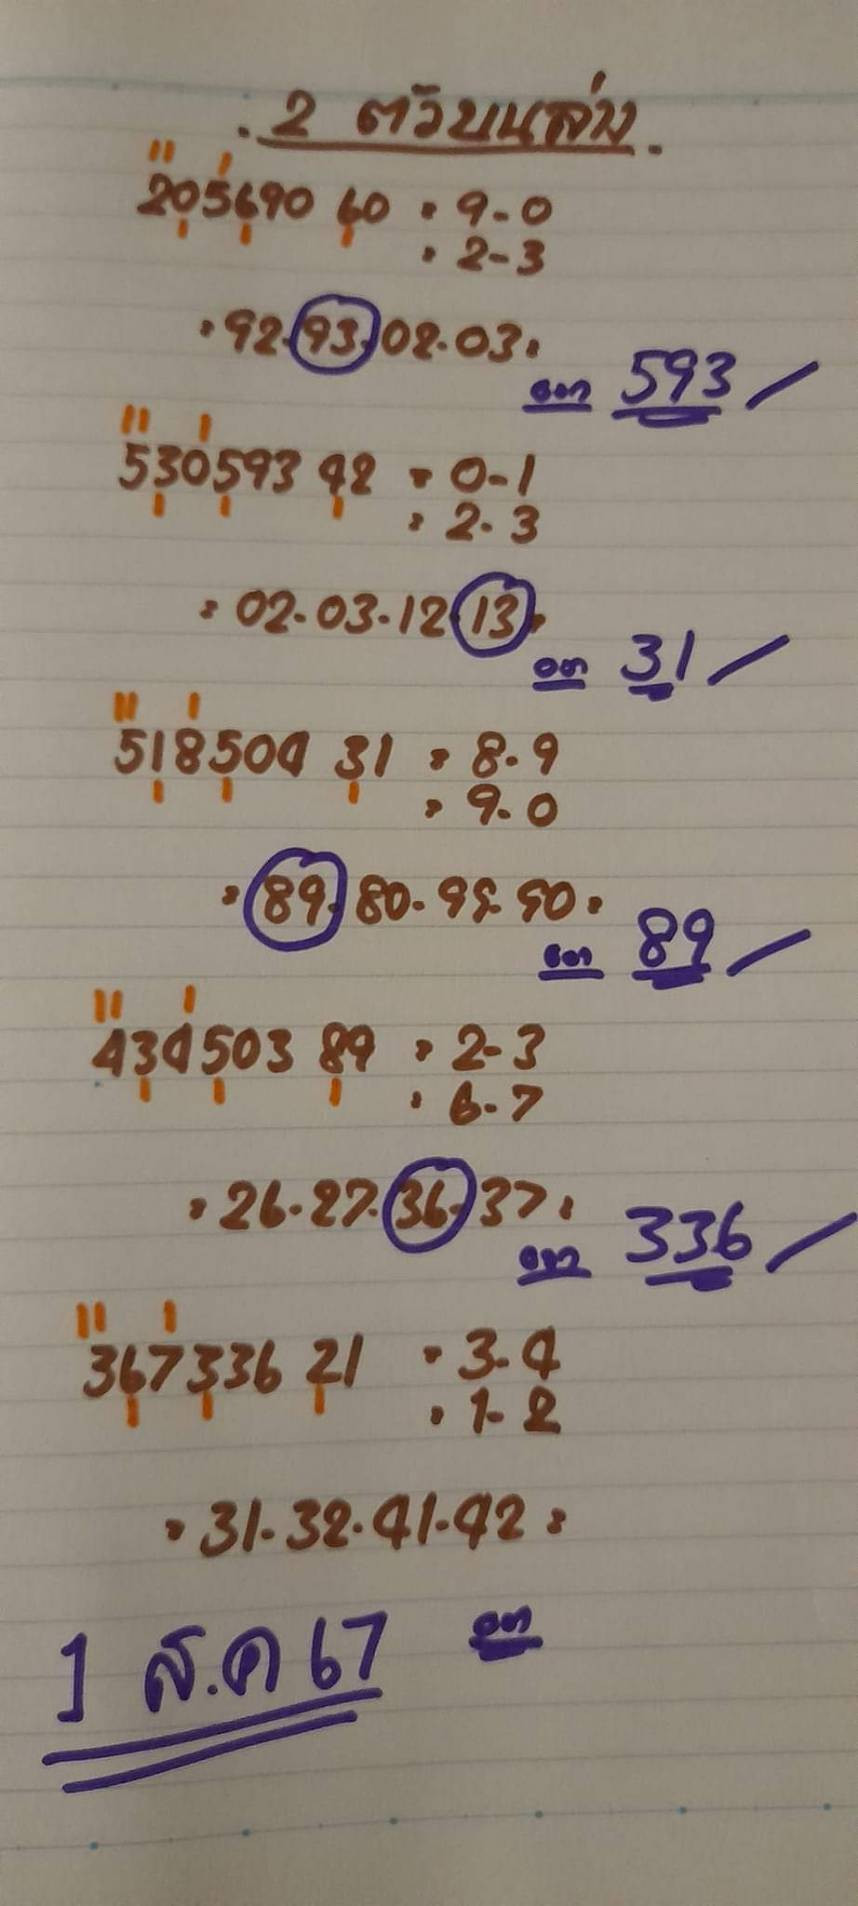 2 ตัวบนล่าง
205690 60 = 9-0
= 2-3
= 92.93.02.03.
ออก 593
530593 42 = 0-1
= 2.3
= 02.03.12.13.
ออก 31
518504 31 = 8.9
= 9.0
= 89.80.99.90.
ออก 89
434503 89 = 2-3
= 6-7
= 26.27.36.37.
ออก 336
367336 21 = 3.4
= 1-2
= 31.32.41.42 =
1 ส.ค 67 ออก